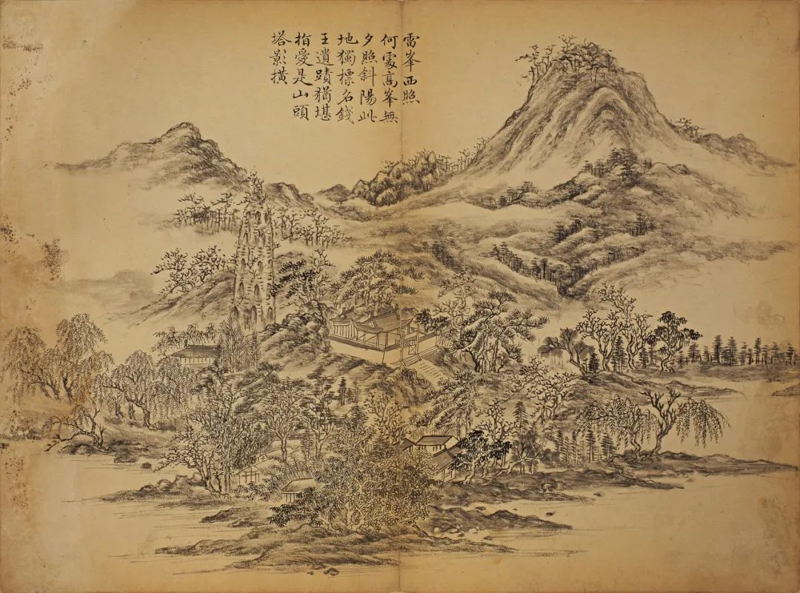 雷峯西照
何處高峯無
夕照斜陽此
地獨標名錢
王遺蹟猶堪
指愛是山頭
塔影橫